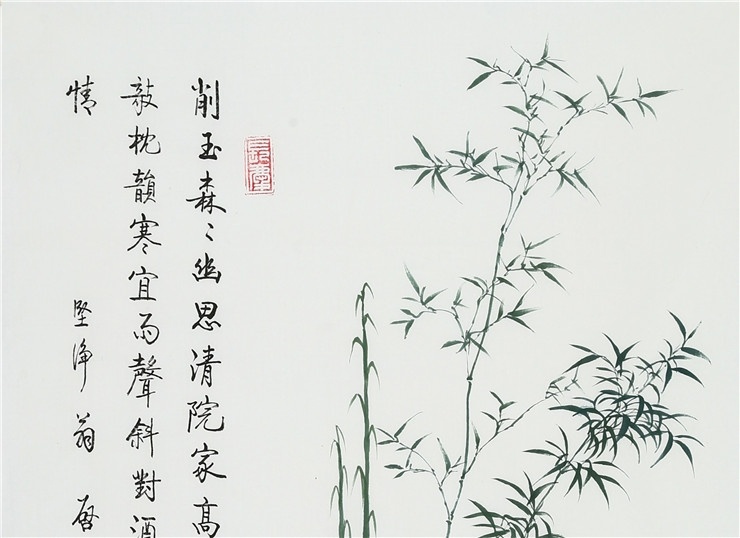 削玉森〻幽思清院家高
敧枕韻寒宜雨聲斜對酒
情
堅淨翁啓